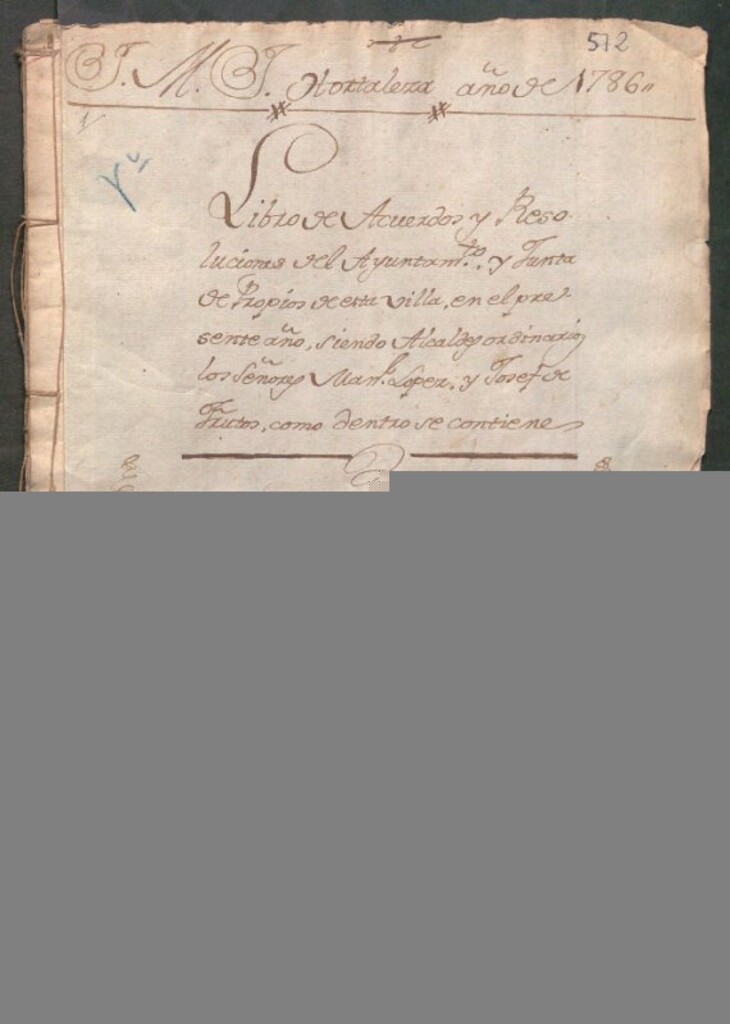 512
J. M. J. Hortaleza año de 1786
Libro de Acuerdos y Reso-
luciones del Ayuntam.to y Junta
de Propios de esta villa, en el pre-
sente año, siendo Alcaldes ordinarios
los Señores Man.l Lopez, y Josef de
Frutos, como dentro se contiene